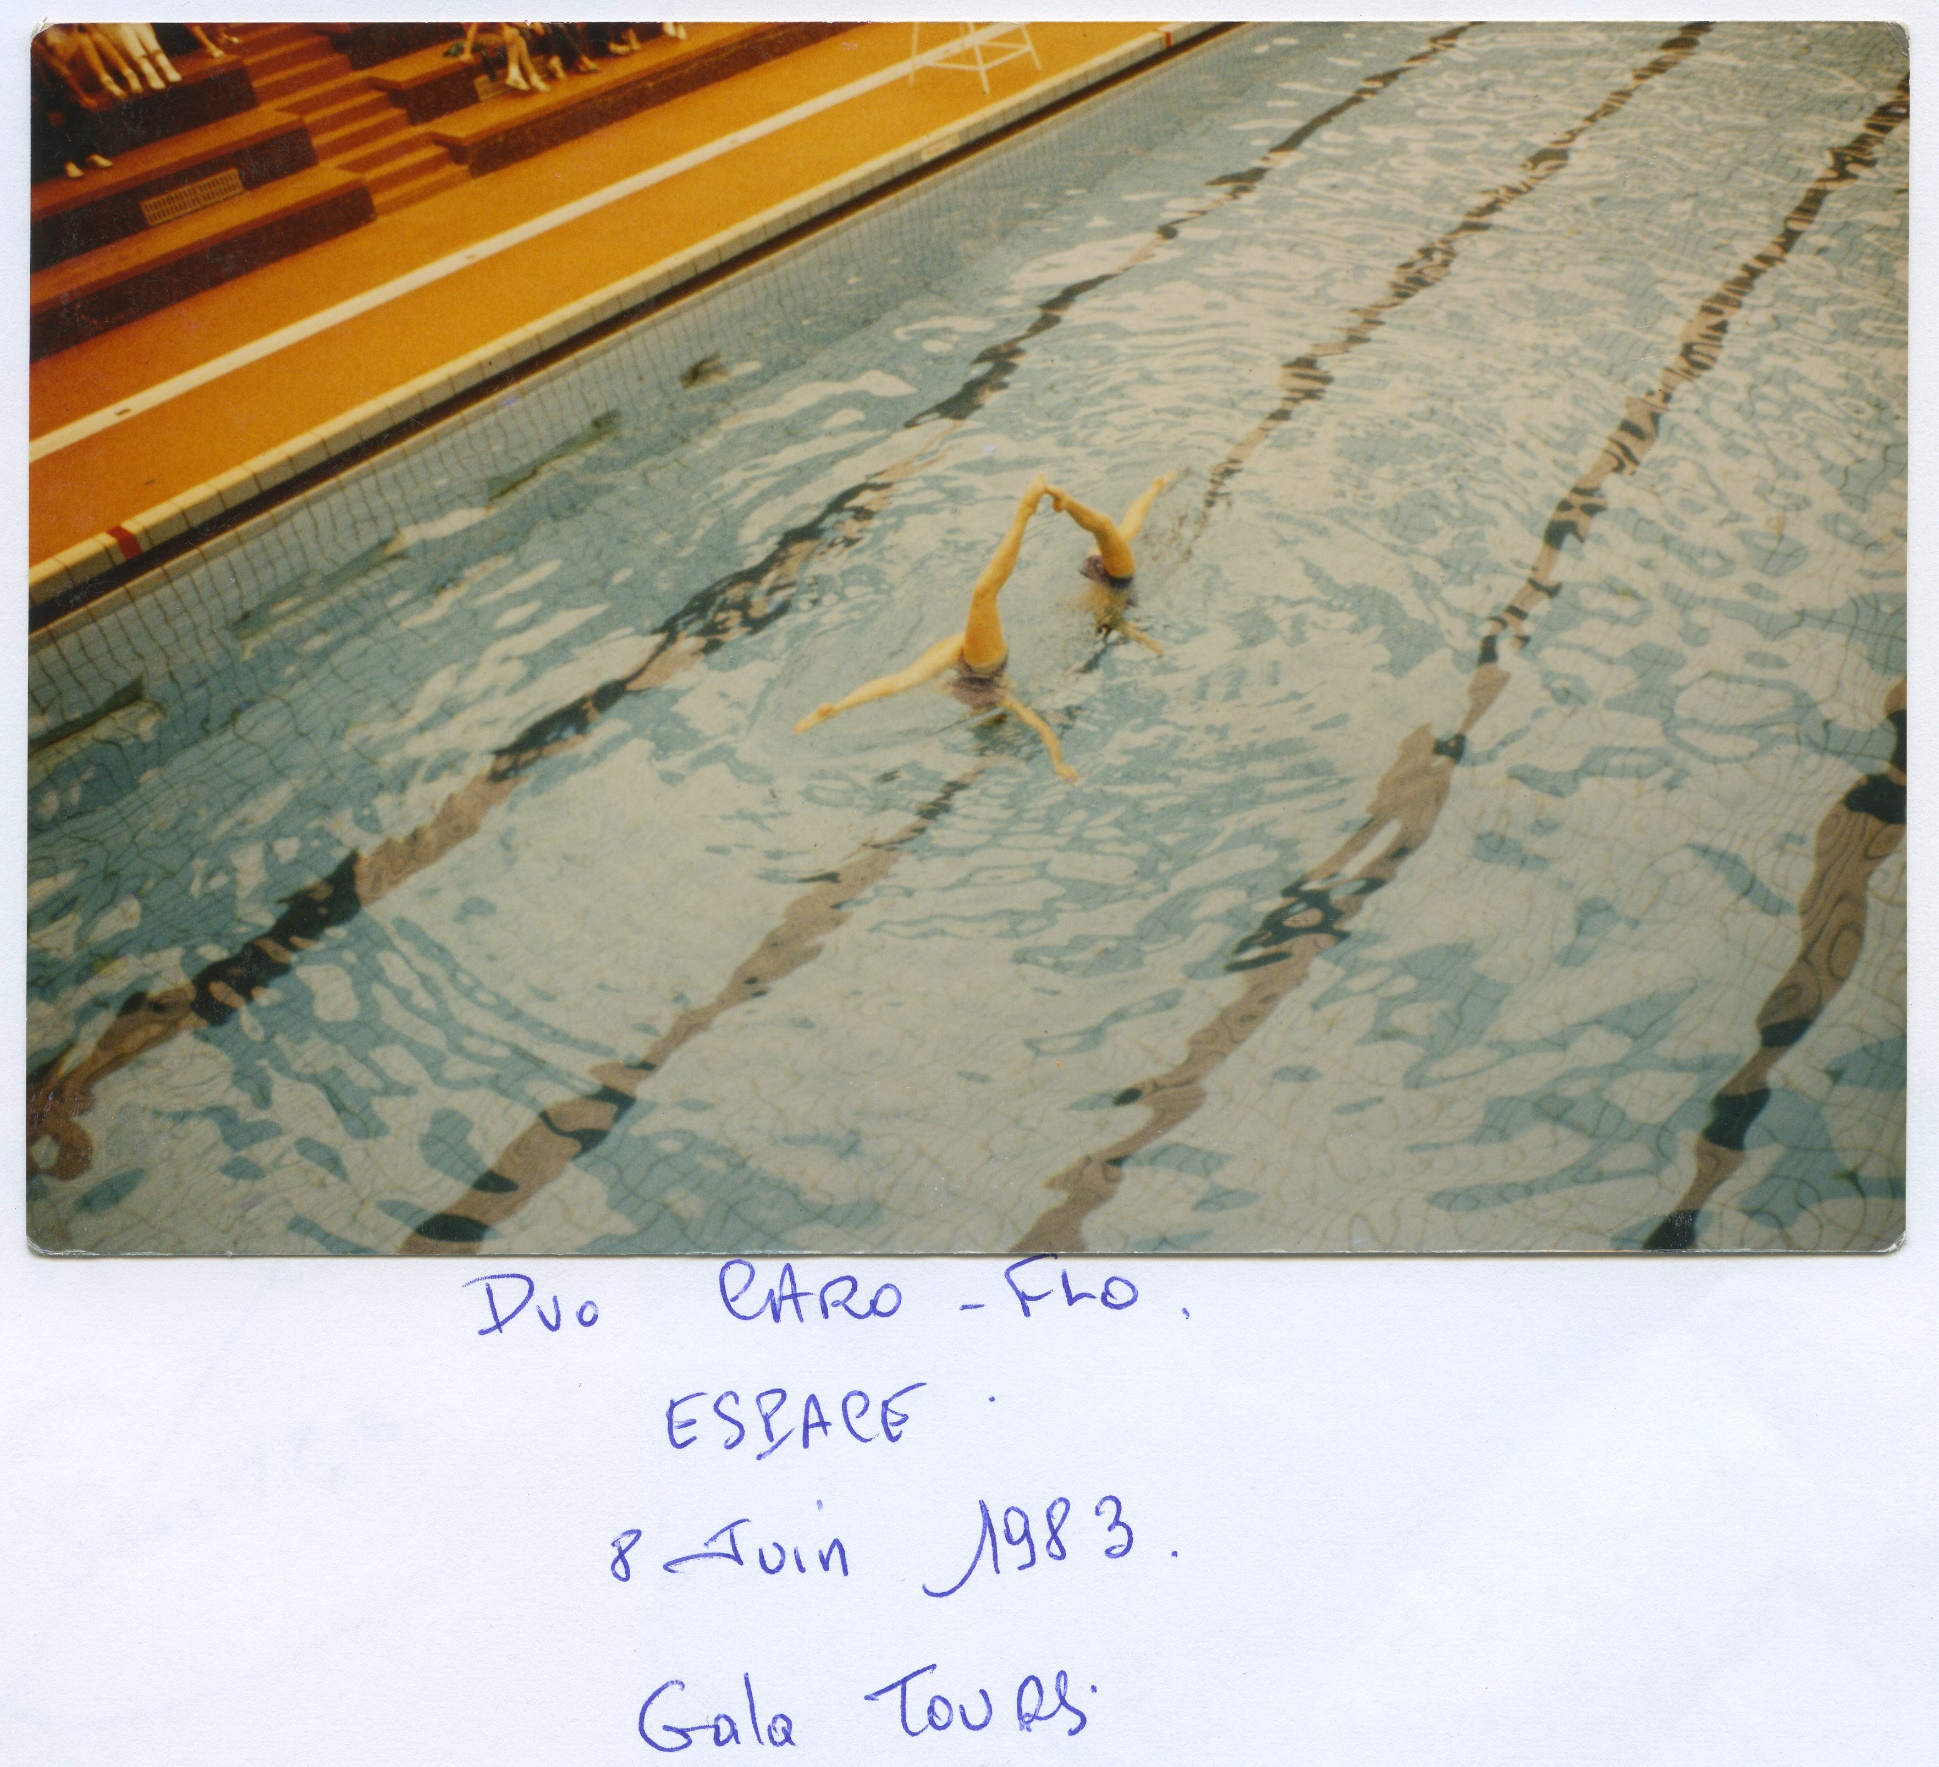 Duo CARO - FLO.
ESPACE.
8 Juin 1983.
Gala TOURS